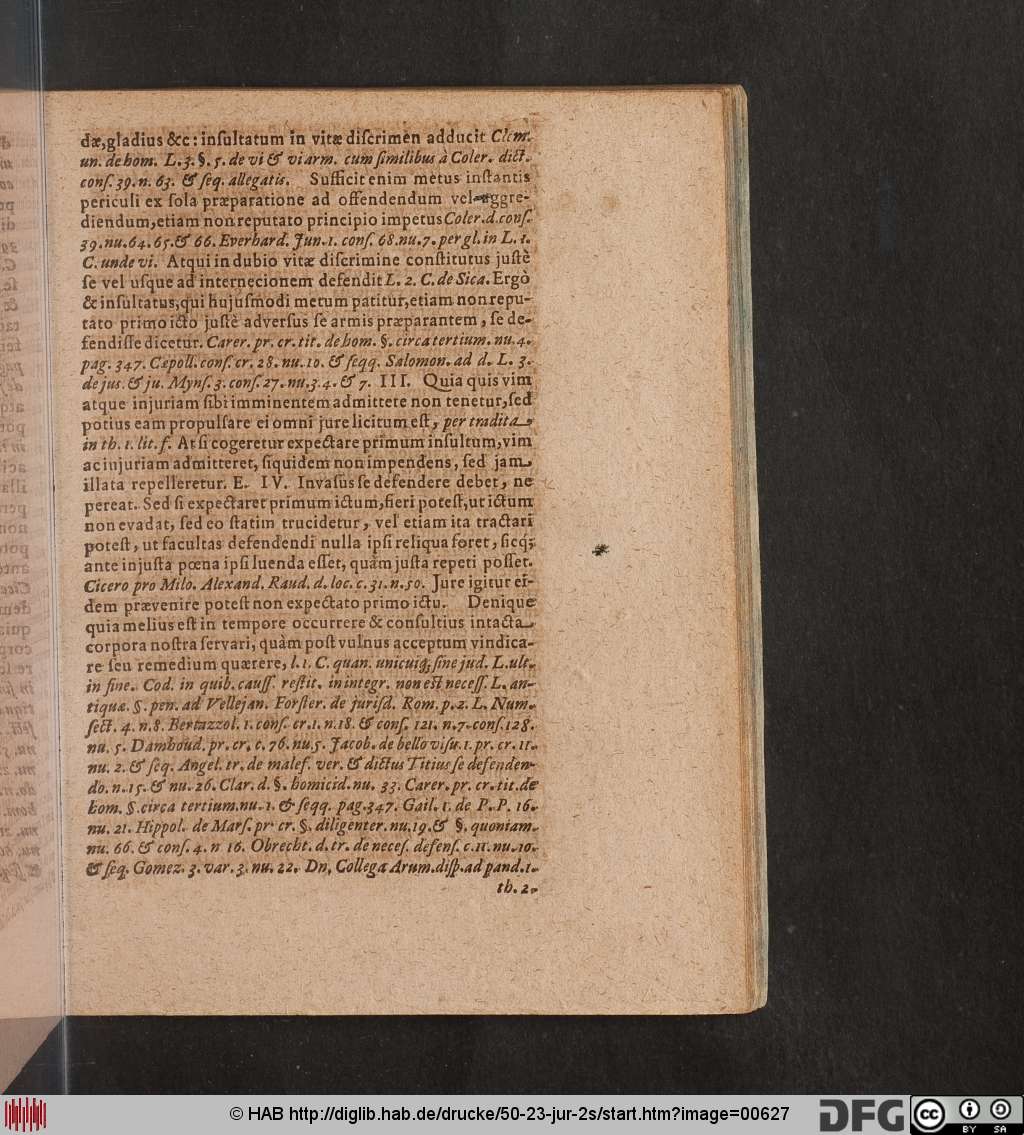 dæ,gladius &c: inſultatum in vitæ diſcrimen adducit Clem.
un. de hom. L. 3. §. 5. de vi & vi arm. cum ſimilibus à Coler. dict.
conſ. 39. n. 63. & ſeq. allegatis. Sufficit enim metus inſtantis
periculi ex ſola præparatione ad offendendum vel aggre-
diendum,etiam non reputato principio impetus Coler. d. conſ.
39. nu. 64. 65. & 66. Everhard. Jun. 1. conſ. 68. nu. 7. per gl. in L. 1.
C. unde vi. Atqui in dubio vitæ diſcrimine conſtitutus juſtè
ſe vel uſque ad internecionem defendit L. 2. C. de Sica. Ergò
& inſultatus,qui hujuſmodi metum patitur,etiam non repu-
tato primo icto juſtè adverſus ſe armis præparantem, ſe de-
fendiſſe dicetur. Carer. pr. cr. tit. de hom. §. circa tertium. nu. 4.
pag. 347. Cæpoll. conſ. cr. 28. nu. 10. & ſeqq. Salomon. ad d. L. 3.
de juſ. & ju. Mynſ. 3. conſ. 27. nu. 3. 4. & 7. III. Quia quis vim
atque injuriam ſibi imminentem admittete non tenetur,ſed
potius eam propulſare ei omni jure licitum eſt, per tradita
in th. 1. lit. f. At ſi cogeretur expectare primum inſultum,vim
ac injuriam admitteret, ſiquidem non impendens, ſed jam
illata repelleretur. E. IV. Invaſus ſe defendere debet, ne
pereat. Sed ſi expectaret primum ictum,fieri poteſt,ut ictum
non evadat, ſed eo ſtatim trucidetur, vel etiam ita tractari
poteſt, ut facultas defendendi nulla ipſi reliqua foret, ſicq;
ante injuſta pœna ipſi luenda eſſet, quàm juſta repeti poſſet.
Cicero pro Milo. Alexand. Raud. d. loc. c. 31. n. 50. Jure igitur ei-
dem prævenire poteſt non expectato primo ictu. Denique
quia melius eſt in tempore occurrere & conſultius intacta
corpora noſtra ſervari, quàm poſt vulnus acceptum vindica-
re ſeu remedium quærere, l. 1. C. quan. unicuiq; ſine jud. L. ult.
in fine. Cod. in quib. cauſſ. reſtit. in integr. non eſt neceſſ. L. an-
tiquæ. §. pen. ad Vellejan. Forſter. de juriſd. Rom. p. 2. L. Num.
ſect. 4. n. 8. Bertazzol. 1. conſ. cr. 1. n. 18. & conſ. 121. n. 7. conſ. 128.
nu. 5. Damhoud. pr. cr. c. 76. nu. 5. Jacob. de bello viſu. 1. pr. cr. 11.
nu. 2. & ſeq. Angel. tr. de malef. ver. & dictus Titius ſe defenden-
do. n. 15. & nu. 26. Clar. d. §. homicid. nu. 33. Carer. pr. cr. tit. de
hom. §. circa tertium. nu. 1. & ſeqq. pag. 347. Gail. 1. de P. P. 16.
nu. 21. Hippol. de Marſ. pr. cr. §. diligenter. nu. 19. & §. quoniam.
nu. 66. & conſ. 4. n 16. Obrecht. d. tr. de neceſ. defenſ. c. 11. nu. 10.
& ſeq. Gomez. 3. var. 3. nu. 22. Dn, Collega Arum. diſp. ad pand. 1.
th. 2.
© HAB http://diglib.hab.de/drucke/50-23-jur-2s/start.htm?image=00627
DFG
cc BY SA